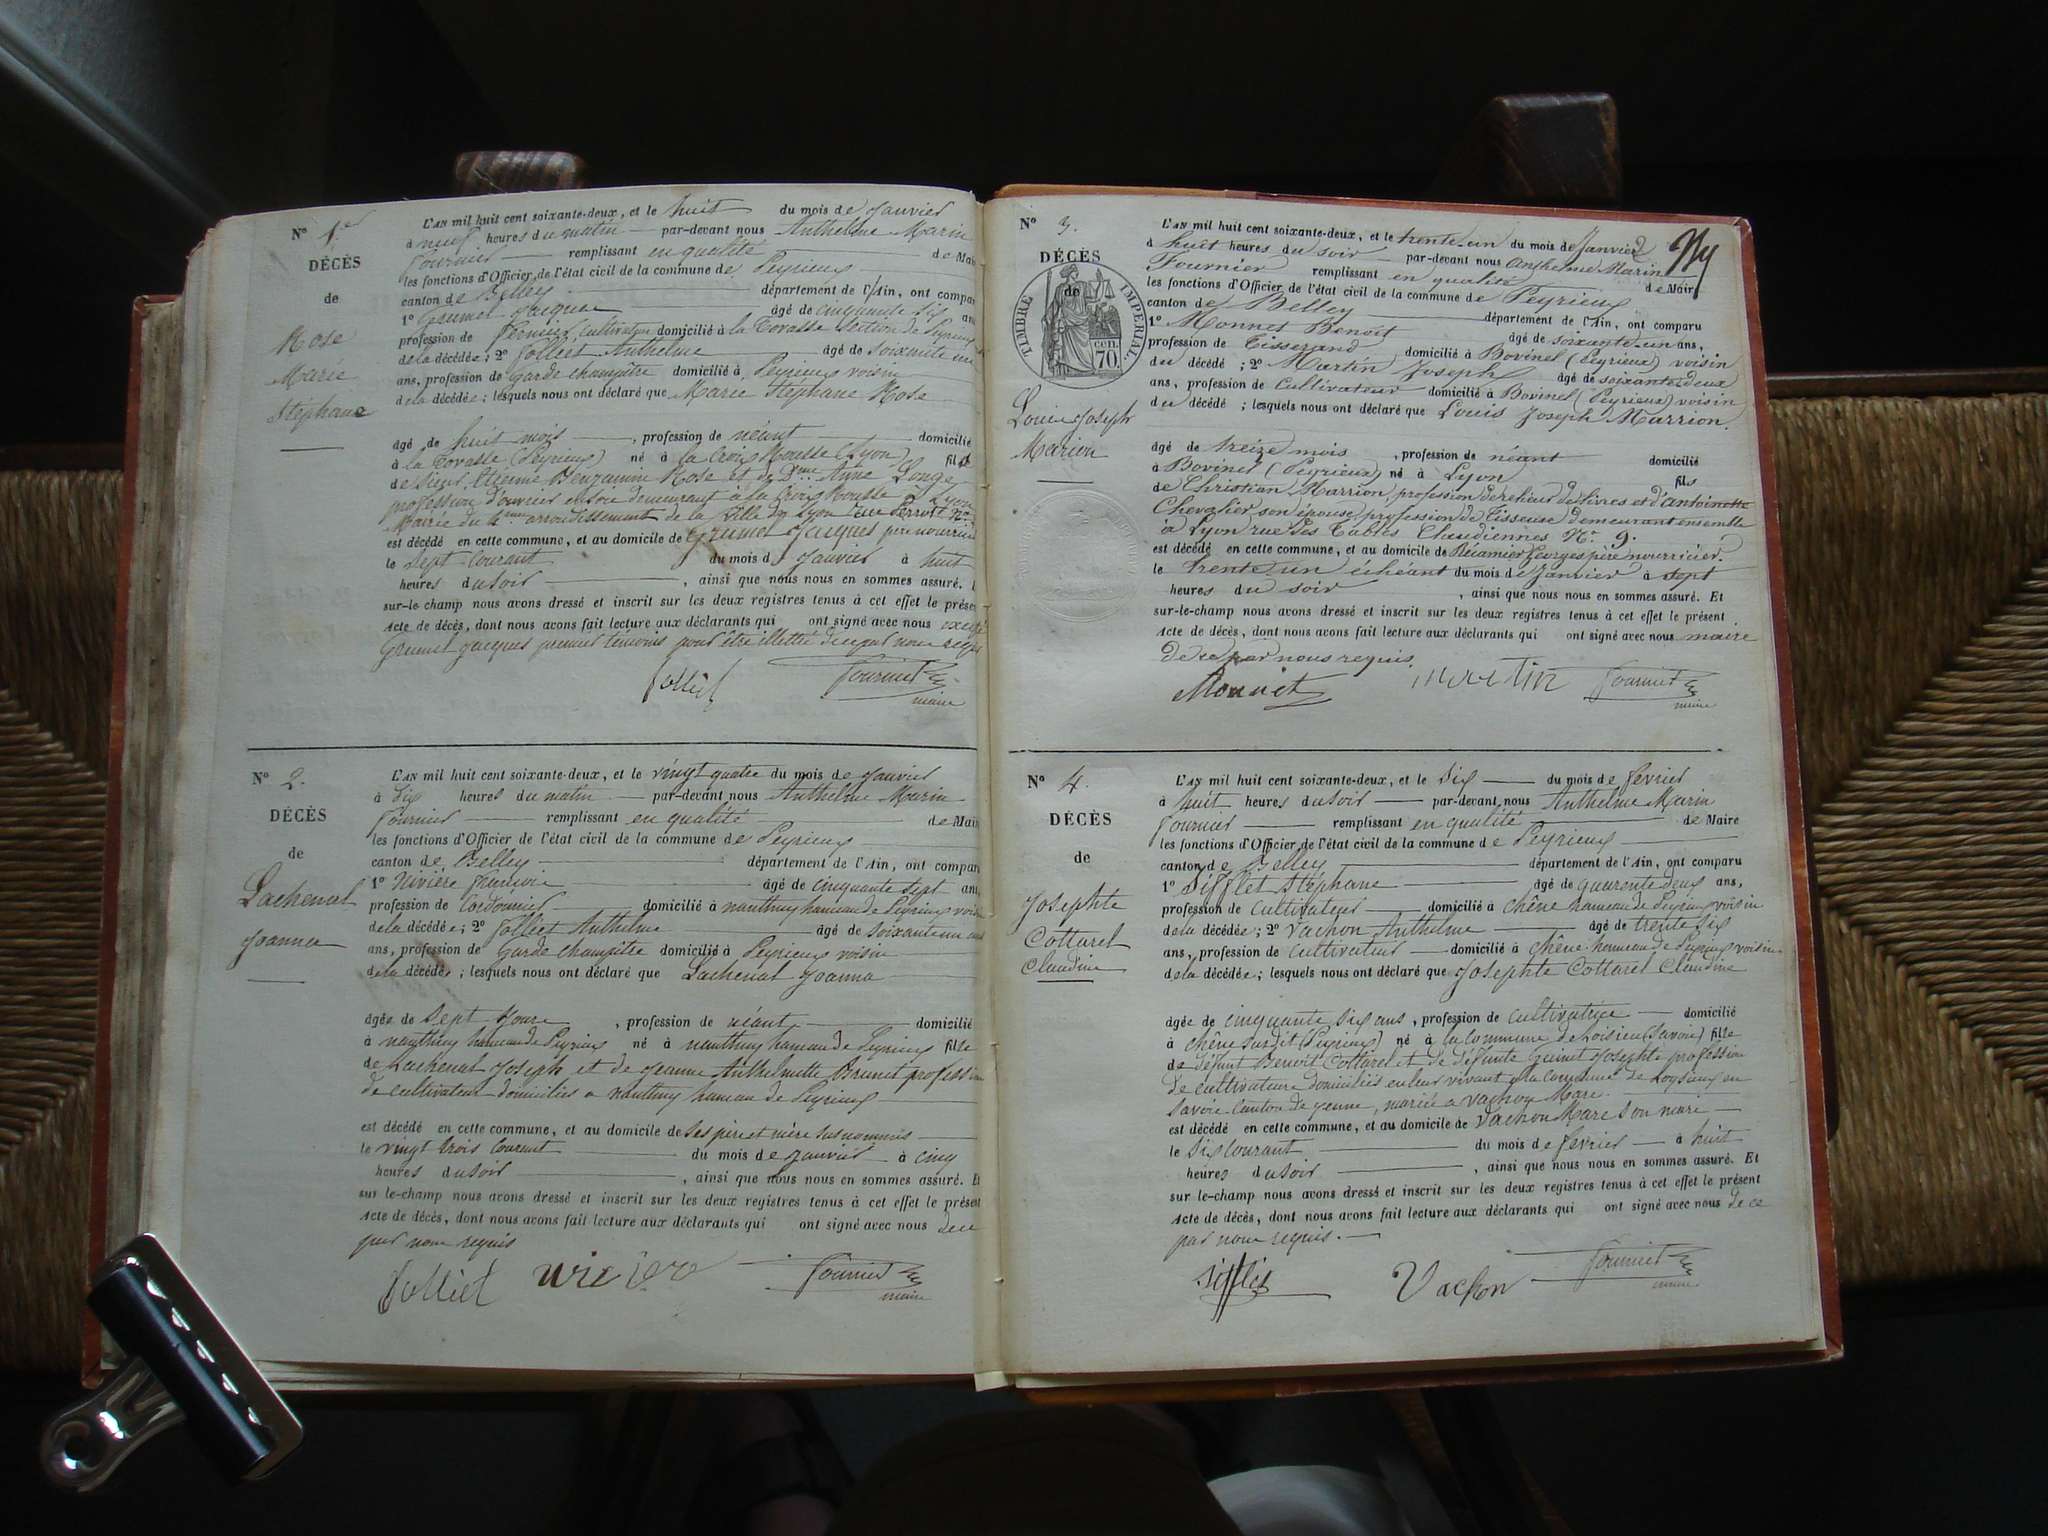 N° 1er
DÉCÈS
de
Rose
Marie
Stéphane
L'AN mil huit cent soixante-deux, et le huit du mois de Janvier
à neuf heures du matin par-devant nous Anthelme Marin
Fournier remplissant en qualité de Mair
les fonctions d'Officier de l'état civil de la commune de Peyrieux
canton de Belley département de l'Ain, ont compar
1° Grumet Jacque âgé de cinquante six ans
profession de Fermier, cultivateur domicilié à la Tovasse section de Peyrieux
de la décédée; 2° Folliet Anthelme âgé de soixante un
ans, profession de Garde champêtre domicilié à Peyrieux voisin
de la décédée; lesquels nous ont déclaré que Marie Stéphane Rose
âgé de huit mois, profession de néant domicilié
à la Tovasse (Peyrieux) né à la Croix Rousse (Lyon) fille
de Sieur Etienne Benjamin Rose et de Dme Anne Longe
profession d'ouvrier en soie demeurant à la Croix Rousse à Lyon
Mairie du 4me arrondissement de la Ville de Lyon rue Perrot N°
est décédé en cette commune, et au domicile de Grumet Jacques père nourricier
le sept courant du mois de Janvier à huit
heures du soir, ainsi que nous nous en sommes assuré.
sur-le-champ nous avons dressé et inscrit sur les deux registres tenus à cet effet le présen
Acte de décès, dont nous avons fait lecture aux déclarants qui ont signé avec nous excepté
Grumet Jacques premier témoins pour être illettré de ce par nous requis
Folliet Fournier
maire
N° 2.
DÉCÈS
de
Lachenal
Joanna
L'AN mil huit cent soixante-deux, et le vingt quatre du mois de Janvier
à dix heures du matin par-devant nous Anthelme Marin
Fournier remplissant en qualité de Mair
les fonctions d'Officier de l'état civil de la commune de Peyrieux
canton de Belley département de l'Ain, ont compar
1° Rivière François âgé de cinquante sept ans
profession de Cordonnier domicilié à nanthuy hameau de Peyrieux voisin
de la décédée; 2° Folliet Anthelme âgé de soixante un
ans, profession de Garde champêtre domicilié à Peyrieux voisin
de la décédée; lesquels nous ont déclaré que Lachenal Joanna
âgée de sept jours, profession de néant domicilié
à nanthuy hameau de Peyrieux né à nanthuy hameau de Peyrieux fille
de Lachenal Joseph et de Jeanne Anthelmette Brunet profession
de cultivateur domiciliés a nanthuy hameau de Peyrieux
est décédé en cette commune, et au domicile de ses père et mère susnommés
le vingt trois courant du mois de Janvier à cinq
heures du soir, ainsi que nous nous en sommes assuré. Et
sur le-champ nous avons dressé et inscrit sur les deux registres tenus à cet effet le présent
Acte de décès, dont nous avons fait lecture aux déclarants qui ont signé avec nous de ce
par nous requis
Folliet Fournier
maire
N° 3.
DÉCÈS
de
TIMBRE IMPÉRIAL.
CEN. 70.
Louis Joseph
Marion
L'AN mil huit cent soixante-deux, et le trente-un du mois de Janvier
à huit heures du soir par-devant nous Anthelme Marin
Fournier remplissant en qualité de Maire
les fonctions d'Officier de l'état civil de la commune de Peyrieux
canton de Belley département de l'Ain, ont comparu
1° Monnet Benoit âgé de soixante-un ans,
profession de Tisserand domicilié à Bovinel (Peyrieux) voisin
du décédé; 2° Martin Joseph âgé de soixante-deux
ans, profession de Cultivateur domicilié à Bovinel (Peyrieux) voisin
du décédé; lesquels nous ont déclaré que Louis Joseph Marrion.
âgé de treize mois, profession de néant domicilié
à Bovinel (Peyrieux) né à Lyon fils
de Christian Marrion, profession de relieur de livres et d'Antoinette
Chevalier son épouse, profession de Tisseuse demeurant ensemble
à Lyon rue des Tables Claudiennes N° 9.
est décédé en cette commune, et au domicile de Récamier Georges père nourricier.
le trente-un échéant du mois de Janvier à sept
heures du soir, ainsi que nous nous en sommes assuré. Et
sur-le-champ nous avons dressé et inscrit sur les deux registres tenus à cet effet le présent
Acte de décès, dont nous avons fait lecture aux déclarants qui ont signé avec nous maire
de ce par nous requis.
Monnet martin Fournier
maire
N° 4.
DÉCÈS
de
Josephte
Cottarel
Claudine
L'AN mil huit cent soixante-deux, et le six du mois de février
à huit heures du soir par-devant nous Anthelme Marin
Fournier remplissant en qualité de Maire
les fonctions d'Officier de l'état civil de la commune de Peyrieux
canton de Belley département de l'Ain, ont comparu
1° Sifflet Stéphane âgé de quarente deux ans,
profession de cultivateur domicilié à chêne hameau de Peyrieux voisin
de la décédée; 2° Vachon Anthelme âgé de trente six
ans, profession de cultivateur domicilié à chêne hameau de Peyrieux voisin
de la décédée; lesquels nous ont déclaré que Josephte Cottarel Claudine
âgée de cinquante six ans, profession de cultivatrice domicilié
à chêne susdit (Peyrieux) né à la commune de Loisieu (Savoie) fille
de défunt Benoit Cottarel et de défunte Guinet Josephte profession
de cultivateurs domiciliés en leur vivant à la commune de Loysieux en
Savoie canton de yenne, mariée a Vachon Marc.
est décédé en cette commune, et au domicile de Vachon Marc son mari
le six courant du mois de février à huit
heures du soir, ainsi que nous nous en sommes assuré. Et
sur-le-champ nous avons dressé et inscrit sur les deux registres tenus à cet effet le présent
Acte de décès, dont nous avons fait lecture aux déclarants qui ont signé avec nous de ce
par nous requis.
Sifflet Vachon Fournier
maire